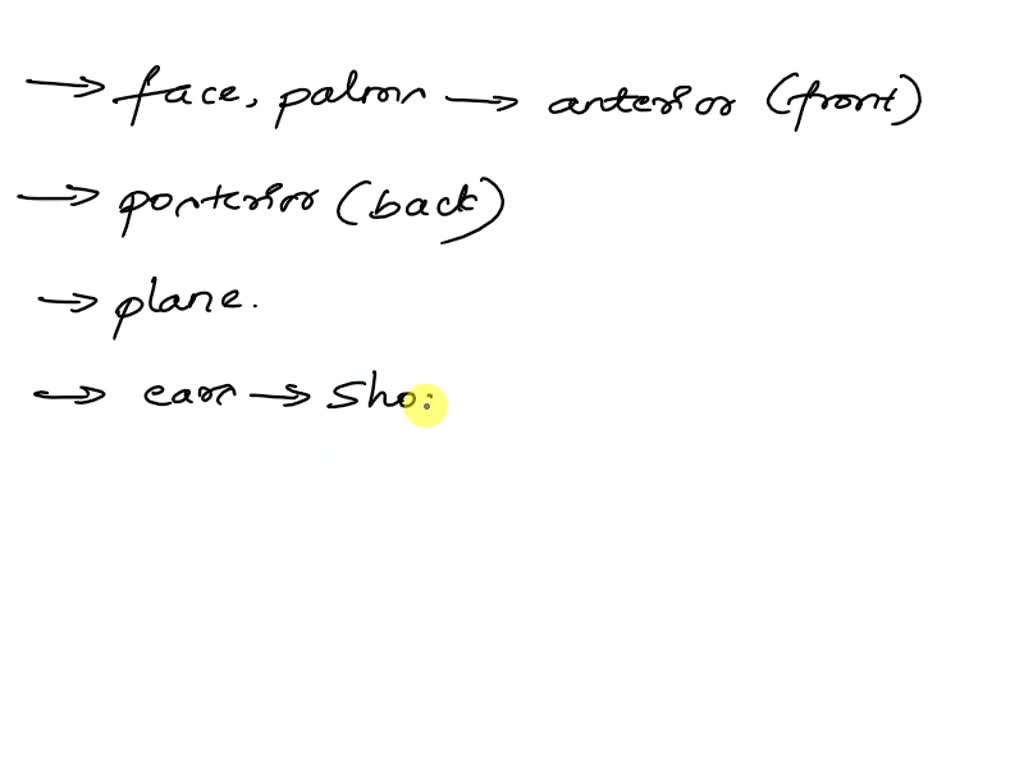 → face, palm → anterior (front)
→ posterior (back)
→ plane.
→ ears → Sho